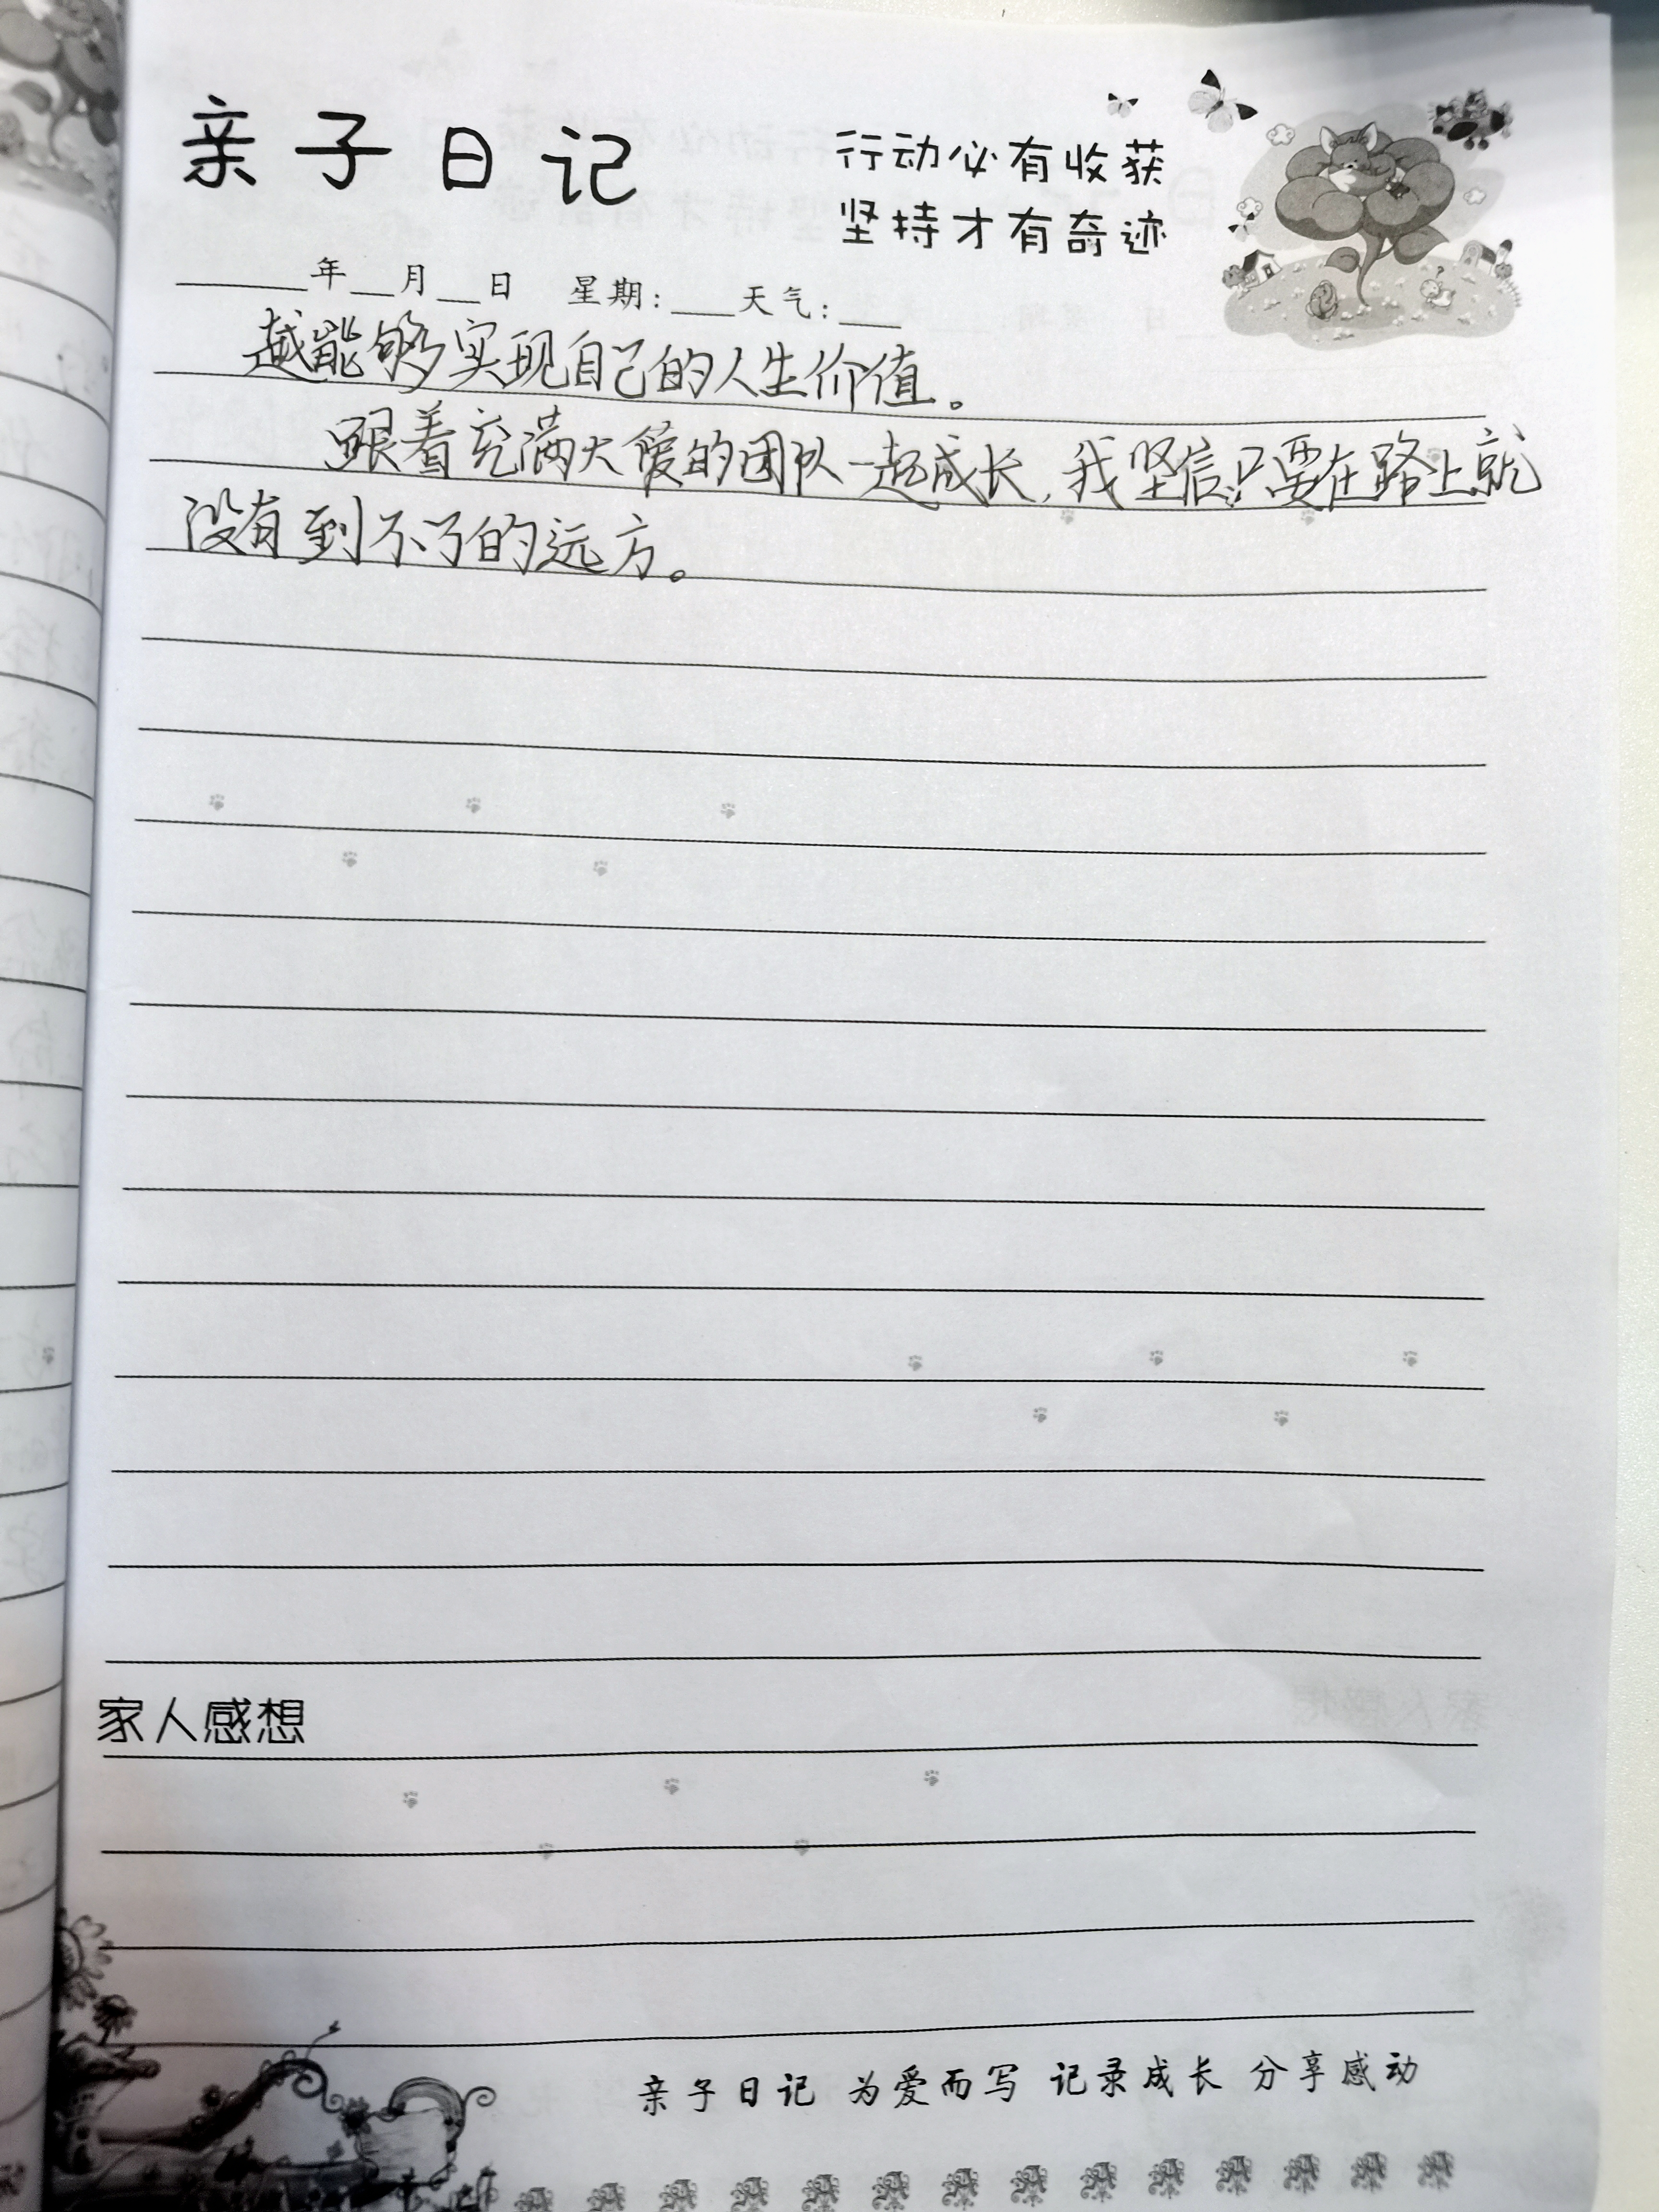 亲子日记
行动必有收获
坚持才有奇迹
____年__月__日 星期:__天气:__
越能够实现自己的人生价值。
跟着充满大爱的团队一起成长,我坚信只要在路上就
没有到不了的远方。
家人感想
亲子日记 为爱而写 记录成长 分享感动